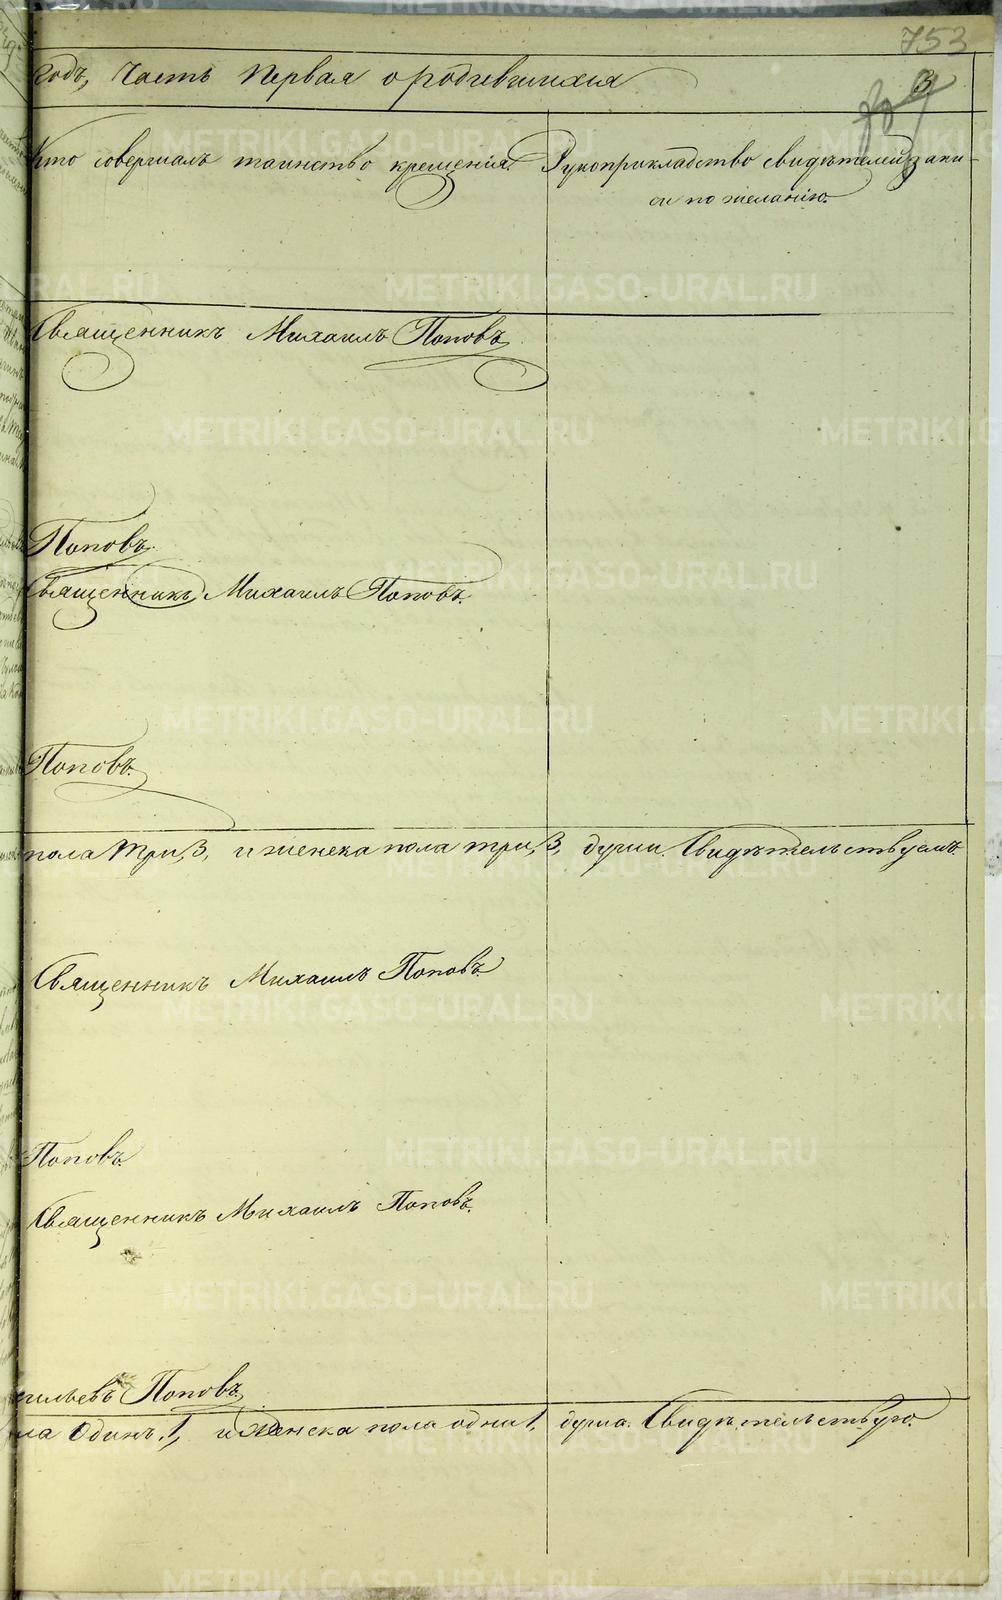 753
3
годъ, Часть Первая о родившихся
Кто совершалъ таинство крещенія. Рукоприкладство свидѣтелей запи-
си по желанію.
Священникъ Михаилъ Поповъ.
Поповъ.
Священникъ Михаилъ Поповъ.
Поповъ.
пола три, 3, и женска пола три, 3, души. Свидѣтельствуемъ.
Священникъ Михаилъ Поповъ.
Поповъ.
Священникъ Михаилъ Поповъ.
сильевъ Поповъ.
ла Одинъ, 1, и женска пола одна 1, душа. Свидѣтельствую.
METRIKI.GASO-URAL.RU